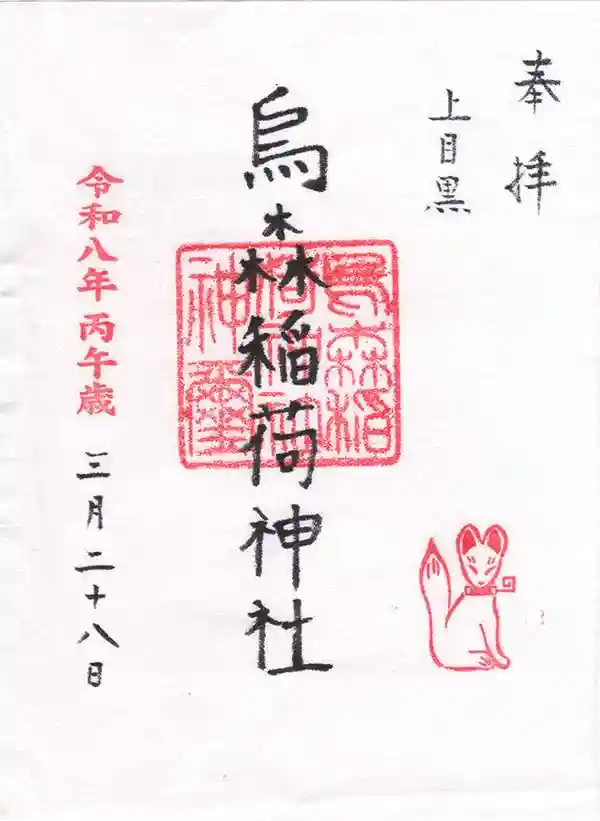 奉拝
上目黒
烏森稲荷神社
令和八年丙午歳 三月二十八日